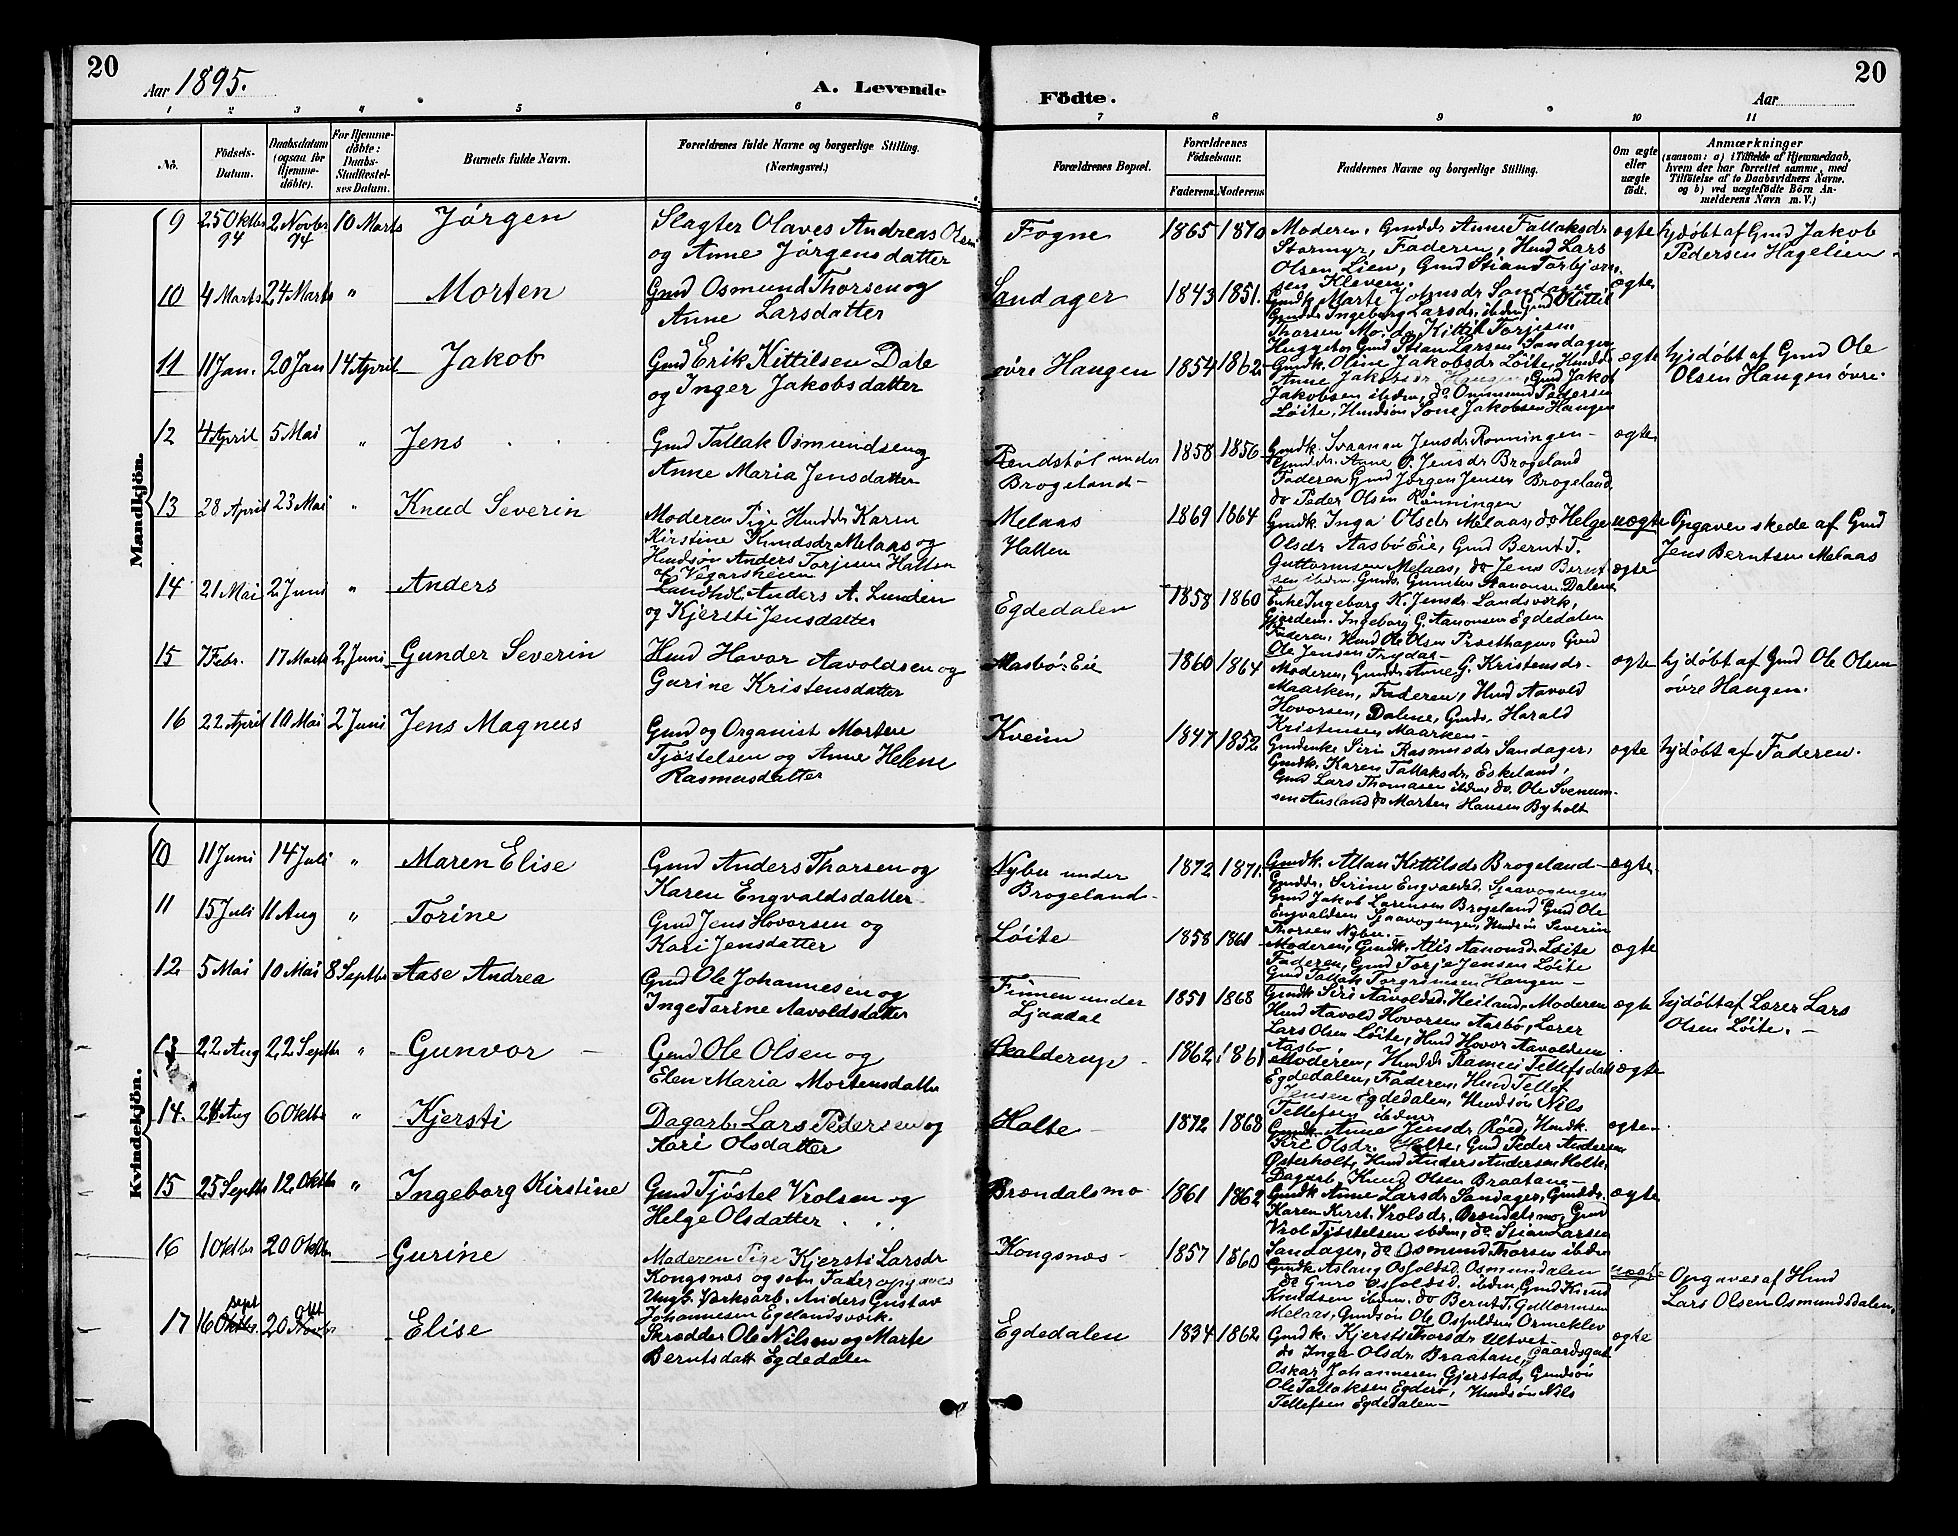 20
Aar 1895.
A. Levende
Födte.
Aar
20
1 2 3 4 5 6 7 8 9 10 11
No.
Födsels-Datum.
Daabsdatum (ogsaa for Hjemme-döbte).
For Hjemme-döbte: Daabs-Stadfæstel-ses Datum.
Barnets fulde Navn.
Forældrenes fulde Navne og borgerlige Stilling. (Næringsvei.)
Forældrenes Bopæl.
Forældrenes Födselsaar.
Faderens. Moderens.
Faddernes Navne og borgerlige Stilling.
Om ægte eller uægte födt.
Anmærkninger
(saasom: a) i Tilfælde af Hjemmedaab, hvem der har forrettet samme, med Tilföielse af to Daabsvidners Navne. og b) ved uægtefödte Börn An-melderens Navn m. V.)
Mandkjön.
9 25 Oktbr 94 2 Novbr 94 10 Marts Jørgen
Slagter Olaves Andreas Olsen
og Anne Jørgensdatter
Fogne 1865 1870
Moderen, Gmdds Anne Tallaksdr
Stormyr, Faderen, Hmd Lars
Olsen Lien, Gmd Stian Torbjørn-
sen Kleven.
ægte
hjdöbt af Gmd Jakob
Pedersen Hagelien
10 4 Marts 24 Marts " Morten
Gmd Osmund Thorsen og
Anne Larsdatter
Sandager 1843 1851.
Gmdk. Marte Johnsdr Sandager,
Gmdds Ingeborg Larsdr. ibdem, Gmd Kittil
Thorsen Mo, do Kittil Torjisen
Huggeto, Gmd Stian Larsen Sandager
ægte
11 11 Jan. 20 Jan 14 April Jakob
Gmd Erik Kittilsen Dale
og Inger Jakobsdatter
øvre Haugen 1854 1862
Gmdk. Oline Jakobsdr Löite, Hmdds
Anne Jakobsdr Haugen, Gmd Jakob
Jakobsen ibdem, do Ommund Pedersen
Löite, Hmdsön Sone Jakobsen Haugen
ægte
hjdöbt af Gmd Ole
Olsen Haugen övre.
12 4 April 5 Mai " Jens
Gmd Tallak Osmundsen og
Anne Maria Jensdatter
Rendstöl under
Brogeland 1858 1856
Gmdk. Svanau Jensdr Rønningen
Gmd dr. Anne P. Jensdr Brogeland
Faderen Gmd Jørgen Jensen Brogeland
do Peder Olsen Rönningen
ægte
13 28 April 23 Mai " Knud Severin
Moderen Pige Hmdds Karen
Kirstine Knudsdr Melaas og
Hmdsön Anders Torjisen Hatten
af Vegarsheien
Melaas
Hatten 1869 1864
Gmdk. Inga Olsdr Melaas, do Helge
Olsdr Aasbö Eie, Gmd Bernt T.
Guttormsen Melaas, do Jens Bernt-
sen ibdem. Gmds. Gunsten Aanonsen Dalene
uægte
Opgaver skede af Gmd
Jens Berntsen Melaas
14 21 Mai 2 Juni " Anders
Landhdl. Anders A. Lunden
og Kjersti Jensdatter
Egdedalen 1858 1860
Enke Ingeborg K. Jensdr Landsverk,
Gjordem. Ingeborg G. Aanonsen Egdedalen
Faderen, Hmd Ole Olsen Præsthagen, Gmd
Ole Jensen Trydal
ægte
15 7 Febr. 17 Marts 2 Juni Gunder Severin
Hmd Havor Aavoldsen og
Gurine Kristensdatter
Aasbö-Eie 1860 1864
Moderen, Gmdds Anne G. Kristensdr
Maarken, Faderen, Hmd Aavold
Hovorsen, Dalene, Gmds. Harald
Kristensen Maarken
ægte
hjdöbt af Gmd Ole Olsen
øvre Haugen.
16 22 April 10 Mai 2 Juni Jens Magnus
Gmd og Organist Morten
Tjöstelsen og Anne Helene
Rasmusdatter
Kveim 1847 1852
Gmdenke Siri Rasmusdr Sandager,
Gmdk. Karen Tallaksdr, Eskeland,
Gmd Lars Thomasen ibdem, do. Ole Svenum-
sen Ausland do Morten Hansen Byholt
ægte
hjdöbt af Faderen.
Kvindekjön.
10 11 Juni 14 Juli " Maren Elise
Gmd Anders Thorsen og
Karen Engvaldsdatter
Nybu under
Brogeland 1872 1871.
Gmdk. Allan Kittilsdr Brogeland
Gmdds. Sirine Engvaldsd. Sjaavogengen
Gmd Jakob Lorensen Brogeland Gmd Ole
Engvaldsen Sjaavogengen, Hmdsön Severin
Thorsen Nybu.
ægte
11 15 Juli 11 Aug " Torine
Gmd Jens Hovorsen og
Kari Jensdatter
Löite 1858 1861
Moderen, Gmdk. Alis Aanonsd. Löite
Faderen, Gmd Torje Jensen Löite
Gmd Tallak Torgrimsen Haugen
ægte
12 5 Mai 10 Mai 8 Septbr Aase Andrea
Gmd Ole Johannesen og
Inge Torine Aavoldsdatter
Finnen under
Ljaadal 1851 1868
Gmdk Siri Aavoldsd. Heiland, Moderen
Hmd Aavold Hovorsen Aasbö, Lærer
Lars Olsen Löite, Hmd Hovor Aavoldsen
Aasbö
ægte
hjdöbt af Lærer Lars
Olsen Löite.
13 22 Aug 22 Septbr " Gunvor
Gmd Ole Olsen og
Elen Maria Mortensdatter
Skalderup 1862 1861
Moderen, Hmdds Ramcei Tellefsdatt
Egdedalen, Faderen, Hmd Tellef
Jensen Egdedalen, Hmdsön Nils
Tellefsen ibdem
ægte
14. 28 Aug 6 Oktbr " Kjersti
Dagarb. Lars Pedersen og
Kari Olsdatter
Holte 1872 1868
Gmdk. Anne Jensdr Röed, Hmdk.
Kiri Olsdr. Holte, Gmd Peder Andersen
Österholt, Hmd Anders Andersen Holte,
Dagarb. Knud Olsen Braatane
ægte
15 25 Septbr 12 Oktbr " Ingeborg Kirstine
Gmd Tjöstel Vrolsen og
Helge Olsdatter
Brændalsmo 1861 1862
Gmdk Anne Larsdr Sandager, Gmdds.
Karen Kirst. Vrolsdr. Brændalsmo, Gmd
Vrol Tjöstelsen ibdem, do Stian Larsen
Sandager, do Osmund Thorsen ibdem
ægte
16 1 Oktbr 20 Oktbr Gurine
Moderen Pige Kjersti Larsdr
Kongsnæs og som Fader opgaves
Ungk. Værksarb. Anders Gustav
Johannesen Egelandsværk.
Kongsnæs 1857 1860
Gmdk Aslaug Osfoldsd. Osmundalen
do Guro Osfoldsd. ibdem, Gmd Knud
Knudsen ibdem. do Bernt T. Guttormsen
Melaas, Gmdsön Ole Osfuldsen Ormeklev
uægte
Opgaves af Hmd
Lars Olsen Osmundsdalen
17 16 Sept Oktbr. 20 Okt Novbr Elise
Skrædder Ole Nilsen og Marte
Berntsdatt Egdedalen
Egdedalen 1834 1862
Gmdk. Kjersti Thorsdr Ultvet
do Inga Olsdr. Braatane, Gaardsgut
Oskar Johannesen Gjerstad, Gmdsön
Ole Tallaksen Egderö, Hmdsön Nils
Tellefsen Egdedalen
ægte